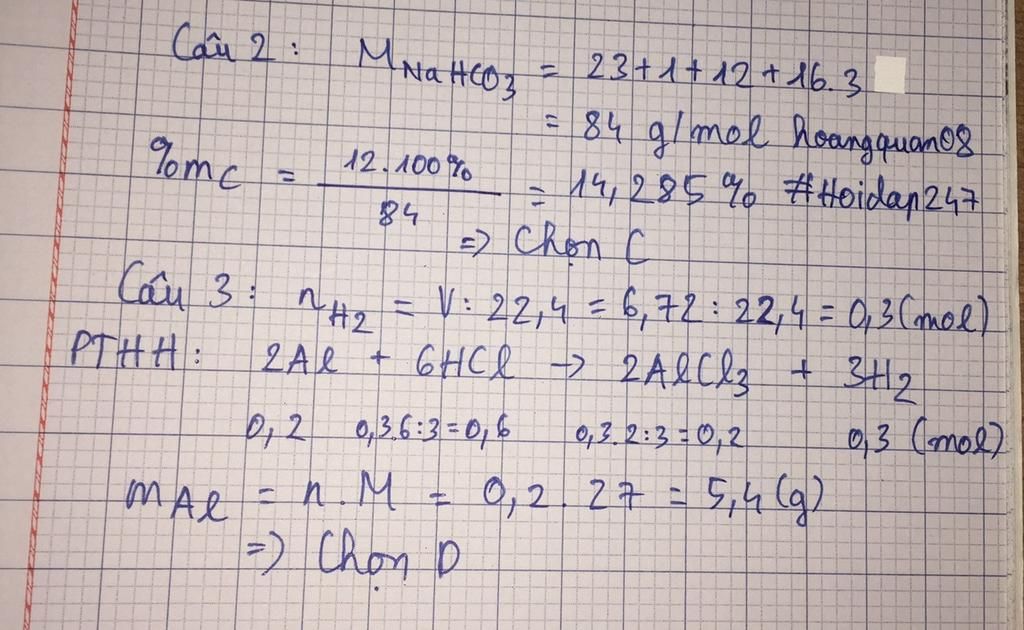 Câu 2 : M NaHCO3 = 23+1+12+16.3
= 84 g/mol hoangquan08
%mC = 12.100% / 84 = 14,285% #Hoidap247
=> Chọn C
Câu 3 : nH2 = V : 22,4 = 6,72 : 22,4 = 0,3 (mol)
PTHH : 2Al + 6HCl → 2AlCl3 + 3H2
0,2 0,3.6:3=0,6 0,3.2:3=0,2 0,3 (mol)
mAl = n.M = 0,2.27 = 5,4 (g)
=> Chọn D